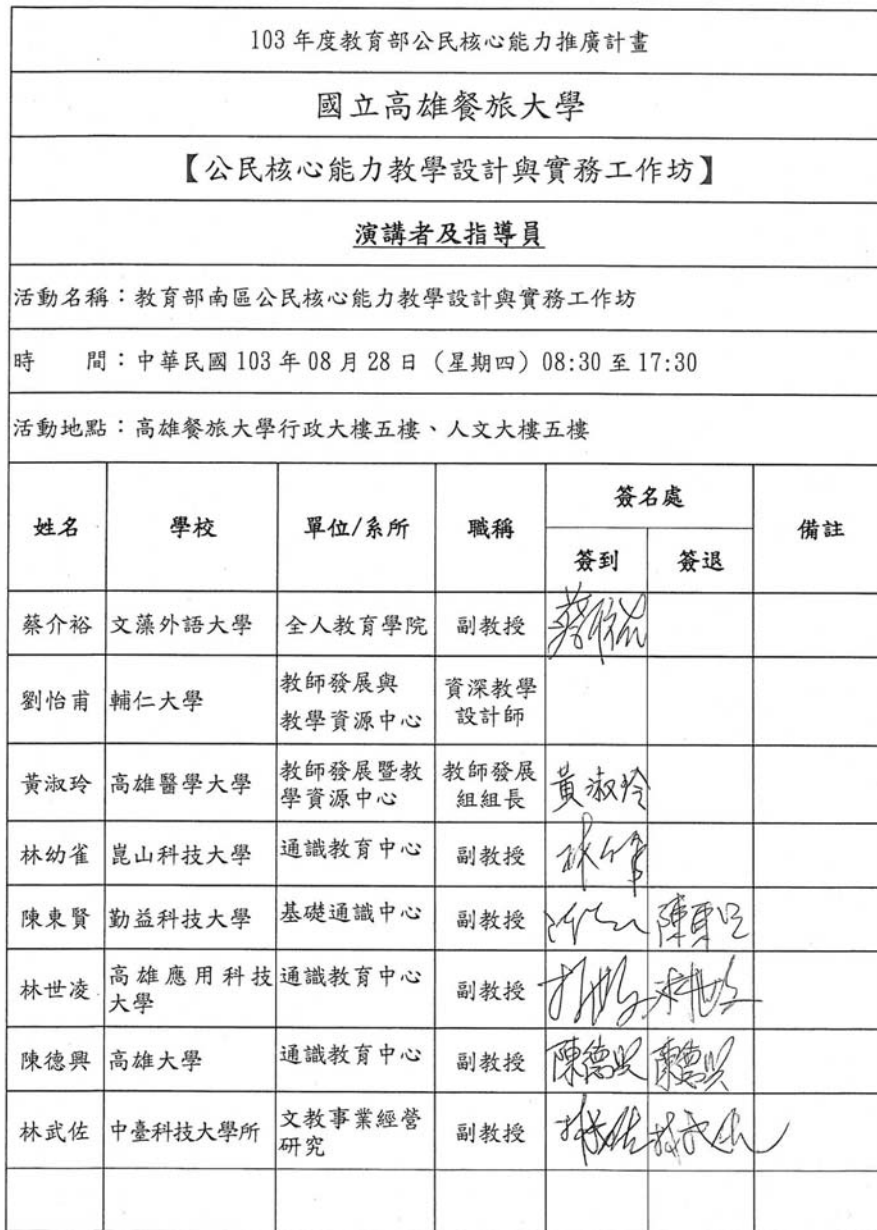 103 年度教育部公民核心能力推廣計畫
國立高雄餐旅大學
【公民核心能力教學設計與實務工作坊】
演講者及指導員
活動名稱：教育部南區公民核心能力教學設計與實務工作坊
時　　間：中華民國 103 年 08 月 28 日（星期四）08:30 至 17:30
活動地點：高雄餐旅大學行政大樓五樓、人文大樓五樓
姓名 學校 單位/系所 職稱 簽名處 備註
簽到 簽退
蔡介裕 文藻外語大學 全人教育學院 副教授 蔡介裕
劉怡甫 輔仁大學 教師發展與 資深教學
教學資源中心 設計師
黃淑玲 高雄醫學大學 教師發展暨教 教師發展 黃淑玲
學資源中心 組組長
林幼雀 崑山科技大學 通識教育中心 副教授
陳東賢 勤益科技大學 基礎通識中心 副教授
林世凌 高雄應用科技 通識教育中心 副教授
大學
陳德興 高雄大學 通識教育中心 副教授 陳德興 陳德興
林武佐 中臺科技大學所 文教事業經營 副教授 林武佐 林武佐
研究